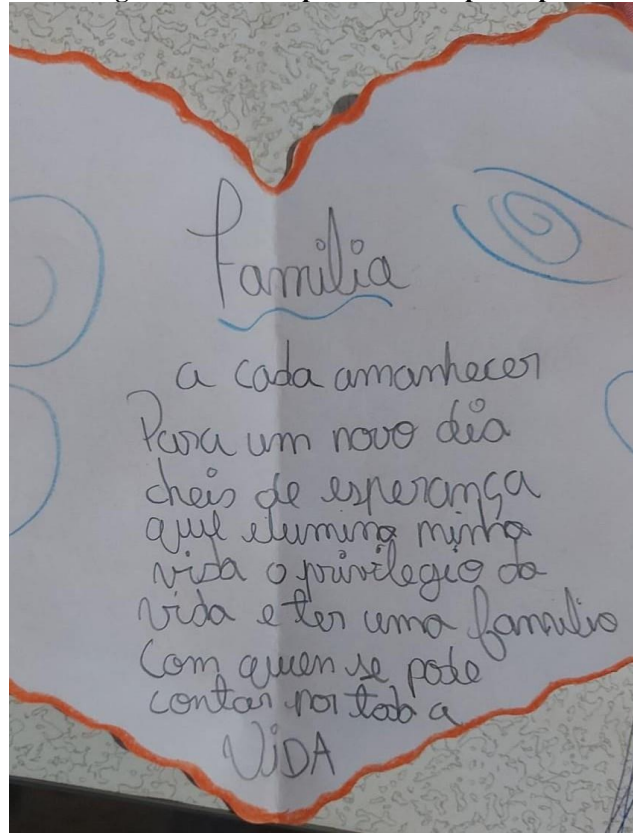 Familia
a cada amanhecer
Para um novo dia
cheis de esperança
que ilumina minha
vida o privilegio da
vida e ter uma familia
Com quem se pode
contar por toda a
ViDA